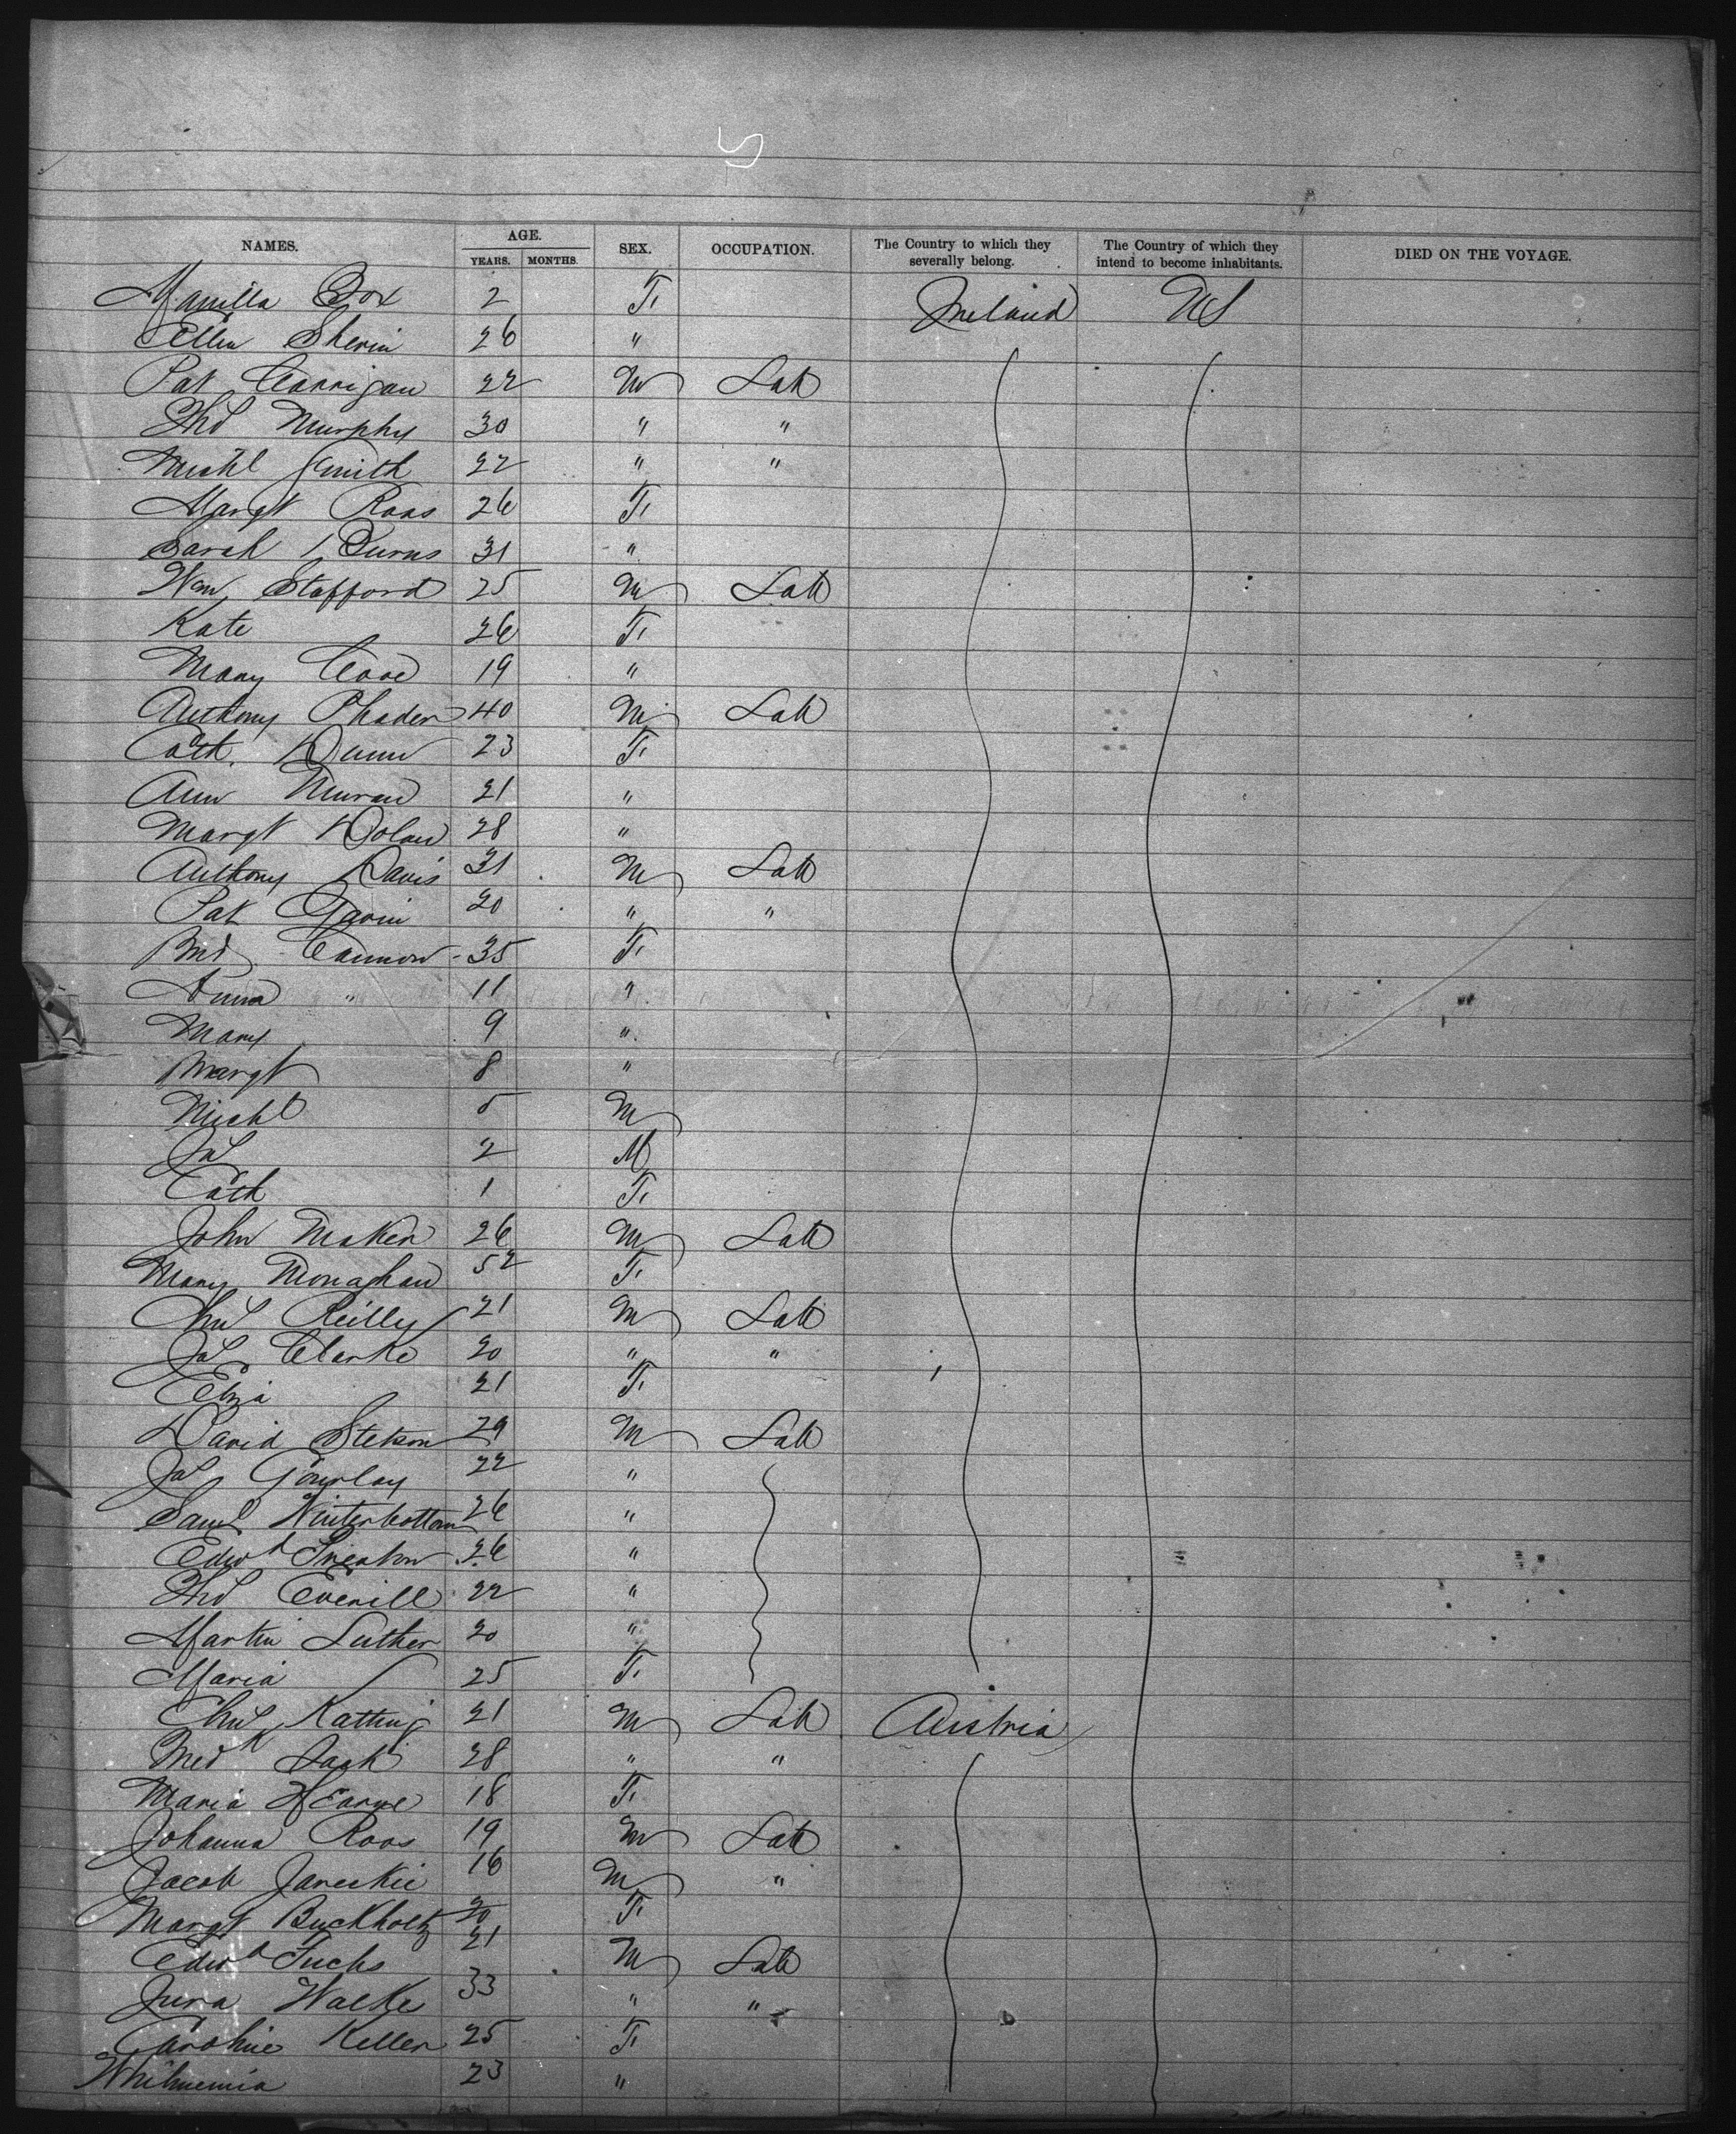 5
NAMES. AGE. SEX. OCCUPATION. The Country to which they severally belong. The Country of which they intend to become inhabitants. DIED ON THE VOYAGE.
YEARS. MONTHS.
2 F. Ireland US
Ellen Sherin 26 "
Pat Carrigan 22 M Lab
Thos Murphy 30 " "
Michl Smith 22 " "
Margt Roas 26 F.
Sarah Burns 31 "
Wm Stafford 25 M Lab
Kate 26 F.
Mary 19 "
Anthony Phaden 40 M Lab
Cath. Dunn 23 F.
Ann Muran 21 "
Margt Dolan 28 "
Anthony Davis 31 M Lab
Pat Gavin 20 " "
Brid Cannon 35 F.
Anna " 11 "
Mary 9 "
Margt 8 "
Michl 5 M
Jas 2 M
Cath 1 F.
John Maken 26 M Lab
Mary Monaghan 52 F.
Reilly 21 M Lab
Jas Clarke 20 " "
Eliza 21 F.
David Stetson 29 M Lab
Jas Gourlay 22 "
Saml Winterbottom 26 "
Edwd 26 "
Thos Everill 22 "
Martin Luther 20 "
Maria 25 F.
Katting 21 M Lab Austria
28 " "
Maria 18 F.
Johanna Roos 19 M Lab
Jacob Jareskie 16 M "
Margt Buckholtz 20 F.
Edwd Fuchs 21 M Lab
Jura Walke 33 " "
Caroline Keller 25 F.
23 "